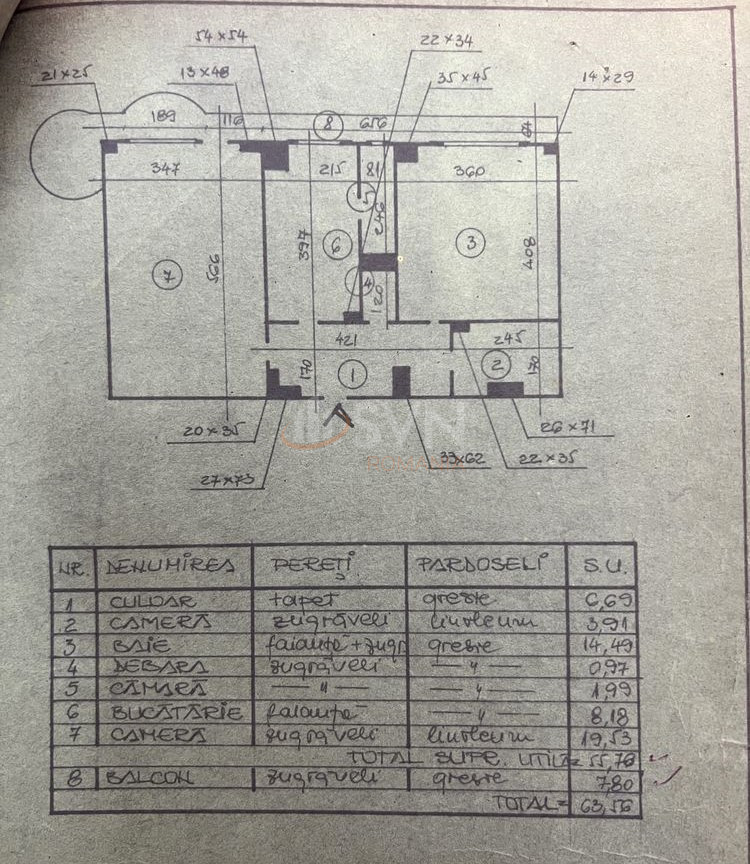 54×54
22×34
21×25
13×48
35×45
14×29
189
116
8
656
347
215
81
360
5
246
397
6
3
566
408
7
4
120
421
245
170
1
2
170
20×35
26×71
27×73
33×62
22×35
NR. DENUMIREA PEREȚI PARDOSELI S.U.
1 CULOAR tapet gresie 6,69
2 CAMERĂ zugrăveli linoleum 3,91
3 BAIE faianță+zugr gresie 14,49
4 DEBARA zugrăveli — " — 0,97
5 CĂMARĂ — " — — " — 1,99
6 BUCĂTĂRIE faianță — " — 8,18
7 CAMERĂ zugrăveli linoleum 19,53
TOTAL SUPR. UTILĂ= 55,76
8 BALCON zugrăveli gresie 7,80
TOTAL= 63,56